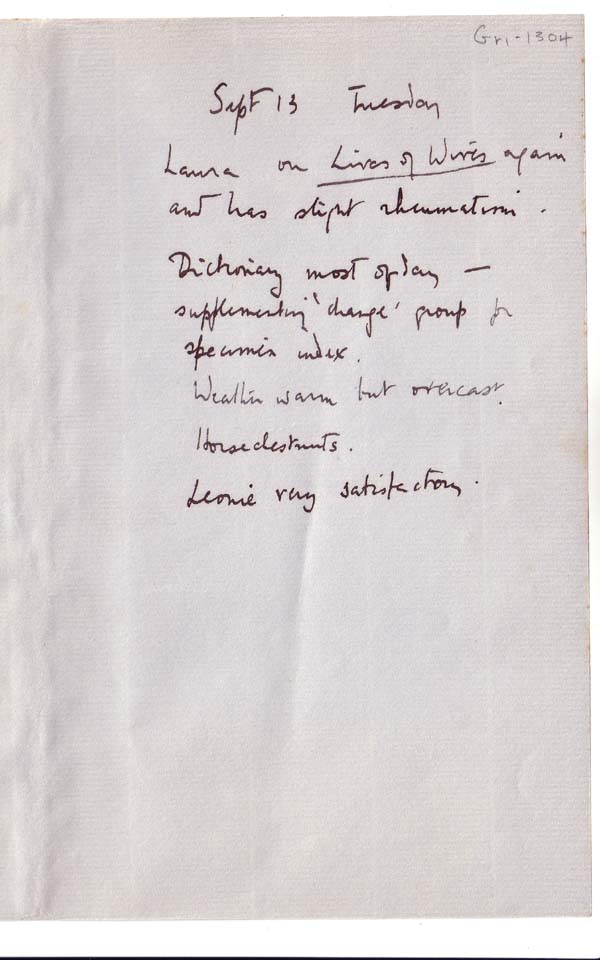 Gri-1304
Sept 13 Tuesday
Laura on Lives of Wives again
and has slight rheumatism.
Dictionary most of day —
supplementing 'change' group for
specimen index.
Weather warm but overcast.
Horsechestnuts.
Leonie very satisfactory.